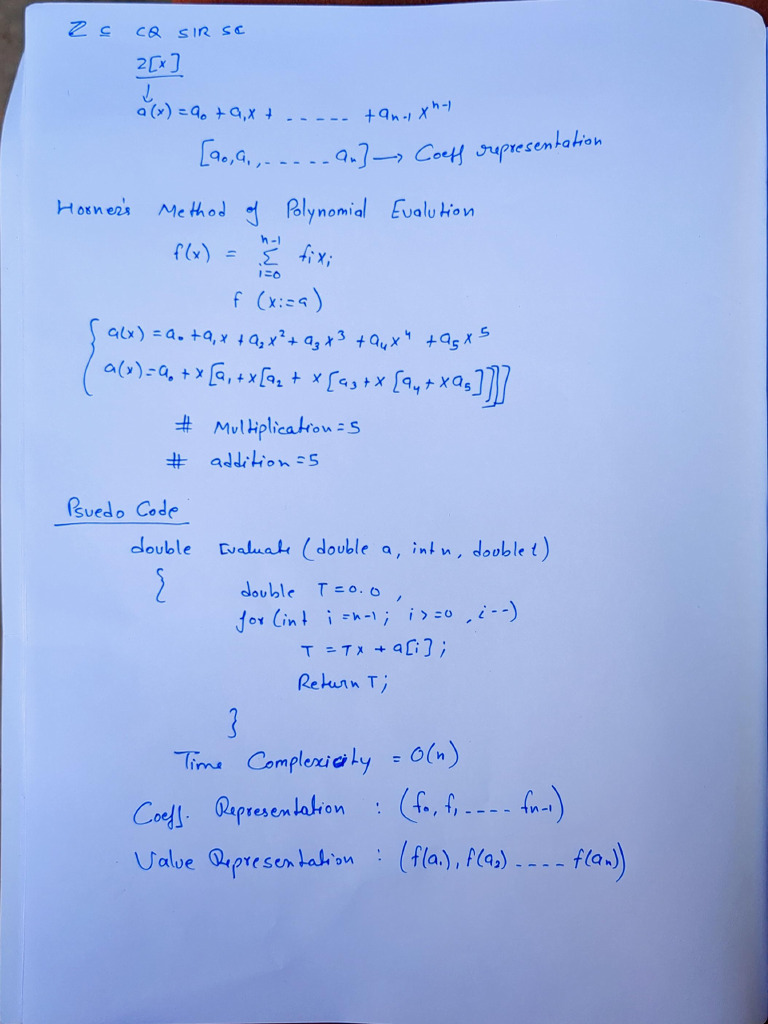 Z ⊆ CQ SIR SC
Z[x]
↓
a(x) = a₀ + a₁x + ------ + aₙ₋₁ xⁿ⁻¹
[a₀, a₁, ------ aₙ] → Coeff representation
Horner's Method of Polynomial Evalution
f(x) = n-1 Σ i=0 fᵢxᵢ
f (x:=a)
a(x) = a₀ + a₁x + a₂x² + a₃x³ + a₄x⁴ + a₅x⁵
a(x) = a₀ + x[a₁ + x[a₂ + x[a₃ + x[a₄ + xa₅]]]]
# Multiplication = 5
# addition = 5
Psuedo Code
double Evaluate (double a, int n, double t)
{ double T = 0.0 ,
for (int i = n-1 ; i >= 0 , i--)
T = Tx + a[i] ;
Return T;
}
Time Complexicity = O(n)
Coeff. Representation : (f₀, f₁ ---- fₙ₋₁)
Value Representation : (f(a₁), f(a₂) ---- f(aₙ))